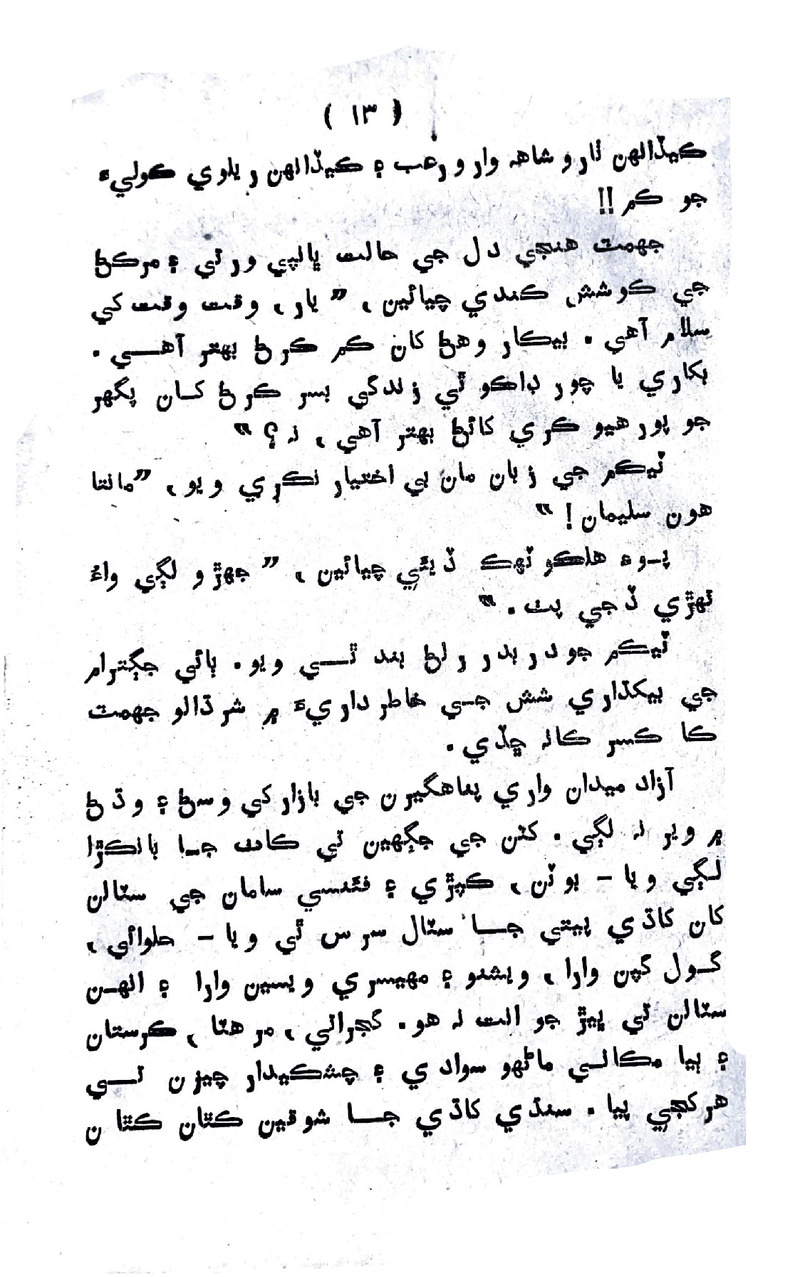 ( ۱۳ )
ڪيڏانهن نارو شاهہ وارو رعب ۽ ڪيڏانهن ريلوي ڪوليءَ
جو ڪم !!
جهمٽ هنجي دل جي حالت ڀانپي ورتي ۽ مرڪڻ
جي ڪوشش ڪندي چيائين، ”يار، وقت وقت کي
سلام آهي. بيڪار وهڻ کان ڪم ڪرڻ بهتر آهي.
بکاري يا چور ڊاڪو ٿي زندگي بسر ڪرڻ کان پگهر
جو پورهيو ڪري کائڻ بهتر آهي، نہ؟“
ٽيڪم جي زبان مان بي اختيار نڪري ويو، ”مانتا
هون سليمان!“
پوءِ هلڪو ٽهڪ ڏيئي چيائين، ”جهڙو لڳي واءُ
تهڙي ڏجي پٺ.“
ٽيڪم جو دربدر رلڻ بند ٿي ويو. ڀائي جڳترام
جي بيڪڏاري شش جي خاطرداريءَ ۾ شرڌالو جهمٽ
ڪا ڪسر ڪانہ ڇڏي.
آزاد ميدان واري پناهگيرن جي بازار کي وسڻ ۽ وڌڻ
۾ وير نہ لڳي. کٽن جي جڳهين تي ڪاٺ جا بانڪڙا
لڳي ويا - بوٽن، ڪپڙي ۽ فئنسي سامان جي سٽالن
کان کاڌي پيتي جا سٽال سرس ٿي ويا - حلوائي،
گول گپن وارا، ويشنو ۽ مهيسري ويسين وارا ۽ انهن
سٽالن تي ڀيڙ جو انت نہ هو. گجراتي، مرهٽا، ڪرستان
۽ ٻيا مڪاني ماڻهو سوادي ۽ چشڪيدار چيزن تي
هرکجي پيا. سنڌي کاڌي جا شوقين ڪٿان ڪٿان